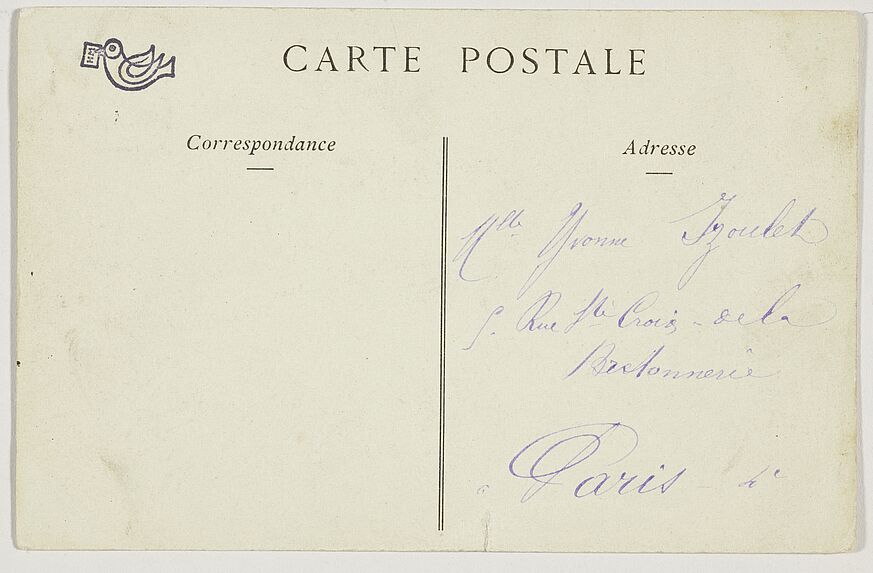 CARTE POSTALE
Correspondance
Adresse
Mlle Yvonne Izoulet
5. Rue Ste Croix - de la
Bretonnerie
Paris - 4e